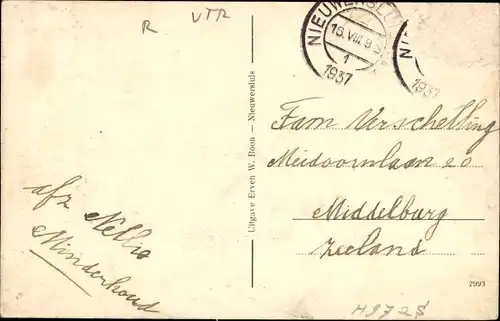 R VTR
NIEUWERSLUIS
16.VIII.8
1
1937
1937
Uitgave Erven W. Boon — Nieuwersluis
Fam Verschelling
Meidoornlaan 20
Middelburg
Zeeland
afz Nellie
Minderhoud
2993